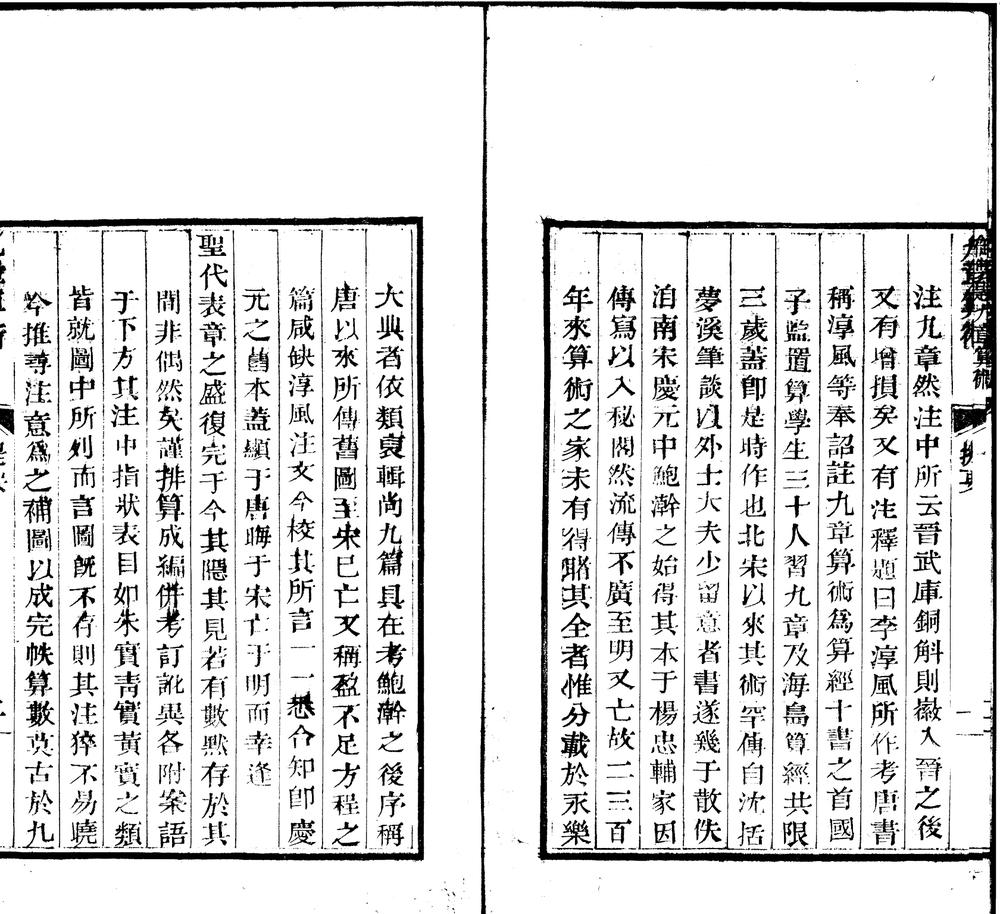 注九章然注中所云晉武庫銅斛則徽入晉之後
又有增損矣又有注釋題曰李淳風所作考唐書
稱淳風等奉詔註九章算術為算經十書之首國
子監置算學生三十人習九章及海島算經共限
三歲蓋即是時作也北宋以來其術罕傳自沈括
夢溪筆談以外士大夫少留意者書遂幾于散佚
洎南宋慶元中鮑澣之始得其本于楊忠輔家因
傳寫以入秘閣然流傳不廣至明又亡故二三百
年來算術之家未有得睹其全者惟分載於永樂
大典者依類裒輯尚九篇具在考鮑澣之後序稱
唐以來所傳舊圖至宋已亡又稱盈不足方程之
篇咸缺淳風注文今校其所言一一悉合知即慶
元之舊本蓋顯于唐晦于宋亡于明而幸逢
聖代表章之盛復完于今其隱其見若有數默存於其
間非偶然矣謹排算成編併考訂訛異各附案語
于下方其注中指狀表目如朱實青實黃實之類
皆就圖中所列而言圖既不存則其注猝不易曉
今推尋注意爲之補圖以成完帙算數莫古於九